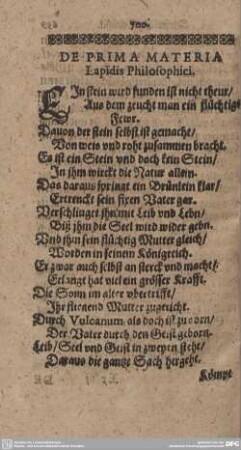 DE PRIMA MATERIA
Lapidis Philosophici.
EIn stein wird funden ist nicht theur/
Aus dem zeucht man ein flüchtigs
Fewr.
Dauon der stein selbst ist gemacht/
Von weis vnd roht zusammen bracht.
Es ist ein Stein vnd doch kein Stein/
In ihm wirckt die Natur allein.
Das daraus springt ein Brünlein klar/
Ertrenckt sein fixen Vater gar.
Verschlinget ihn mit Leib vnd Lebn/
Biß ihm die Seel wird wider gebn.
Vnd ihm sein flüchtig Mutter gleich/
Worden in seinem Königreich.
Er zwar auch selbst an sterck vnd macht/
Erlangt hat viel ein grösser Krafft.
Die Sonn im alter vbertrifft/
Ihr fliegend Mutter zugericht.
Durch Vulcanum als doch ist zuvorn/
Der Vater durch den Geist geborn.
Leib/ Seel vnd Geist in zweyen steht/
Daraus die gantze Sach hergeht.
Kömpt